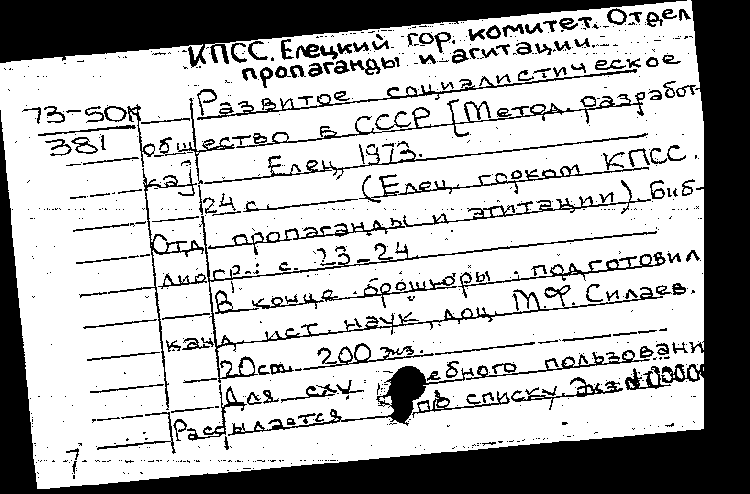 КПСС. Елецкий гор. комитет. Отдел
пропаганды и агитации.
73-50к
381
Развитое социалистическое
общество в СССР [Метод. разработ-
ка]. Елец, 1973.
24 с. (Елец. горком КПСС.
Отд. пропаганды и агитации). Биб-
лиогр.: с. 23-24
В конце брошюры: подготовил
канд. ист. наук, доц. М.Ф. Силаев.
20см. 200 экз.
Для слу ебного пользовани
Рассылается по списку. Экз. №00000
7